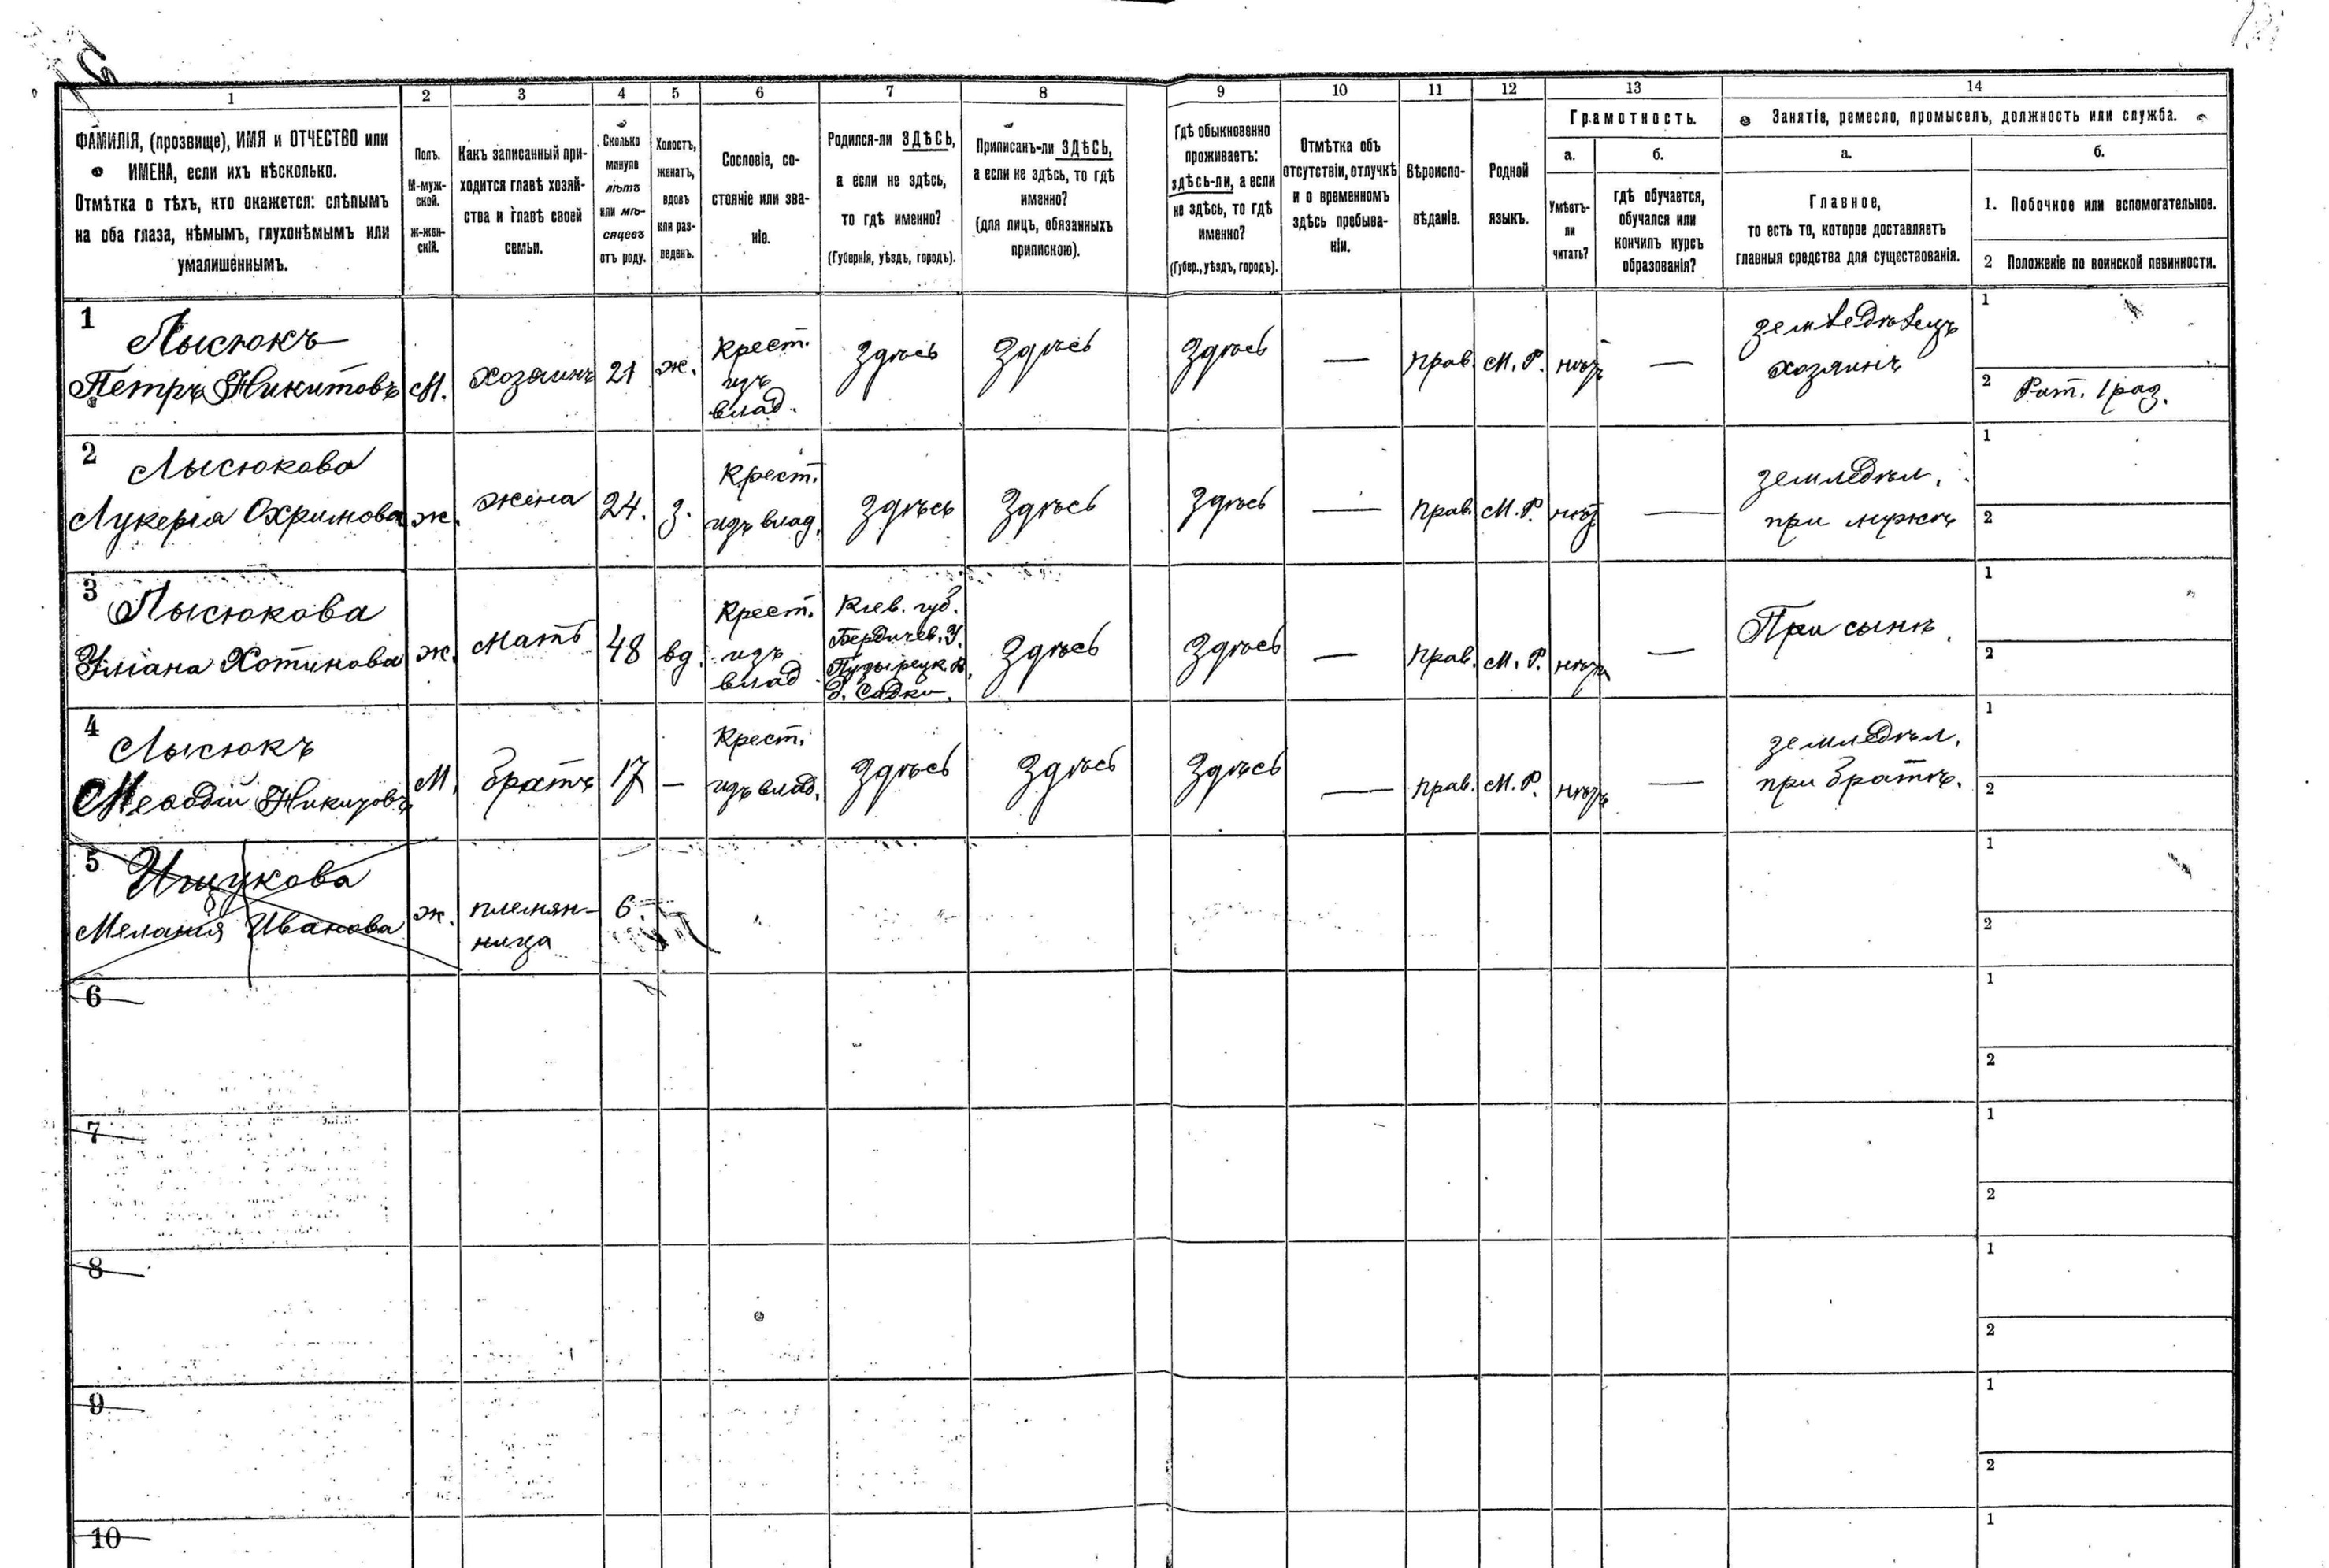 1 2 3 4 5 6 7 8 9 10 11 12 13 14
ФАМИЛІЯ, (прозвище), ИМЯ и ОТЧЕСТВО или
ИМЕНА, если ихъ нѣсколько.
Отмѣтка о тѣхъ, кто окажется: слѣпымъ
на оба глаза, нѣмымъ, глухонѣмымъ или
умалишеннымъ.
Полъ.
М-муж-
ской.
ж-жен-
скій.
Какъ записанный при-
ходится главѣ хозяй-
ства и главѣ своей
семьи.
Сколько
минуло
лѣтъ
или мѣ-
сяцевъ
отъ роду.
Холостъ,
женатъ,
вдовъ
или раз-
веденъ.
Сословіе, со-
стояніе или зва-
ніе.
Родился-ли ЗДѢСЬ,
а если не здѣсь,
то гдѣ именно?
(Губернія, уѣздъ, городъ).
Приписанъ-ли ЗДѢСЬ,
а если не здѣсь, то гдѣ
именно?
(для лицъ, обязанныхъ
припискою).
Гдѣ обыкновенно
проживаетъ:
здѣсь-ли, а если
не здѣсь, то гдѣ
именно?
(Губер., уѣздъ, городъ).
Отмѣтка объ
отсутствіи, отлучкѣ
и о временномъ
здѣсь пребыва-
ніи.
Вѣроиспо-
вѣданіе.
Родной
языкъ.
Грамотность.
а.
Умѣетъ-
ли
читать?
б.
гдѣ обучается,
обучался или
кончилъ курсъ
образованія?
Занятіе, ремесло, промыселъ, должность или служба.
а.
Главное,
то есть то, которое доставляетъ
главныя средства для существованія.
б.
1. Побочное или вспомогательное.
2 Положеніе по воинской повинности.
1
Лысюкъ
Петръ Никитовъ
М.
хозяинъ
21
ж.
Крест.
изъ
влад.
Здѣсь
Здѣсь
Здѣсь
—
прав.
М. Р.
нѣтъ
—
земледѣлецъ
хозяинъ
1
2 Рат. 1 раз.
2
Лысюкова
Лукерія Охримова
ж.
жена
24.
з.
Крест.
изъ влад.
Здѣсь
Здѣсь
Здѣсь
—
прав.
М. Р.
нѣтъ
—
земледѣл.
при мужѣ
1
2
3
Лысюкова
Уліана Хотинова
ж.
мать
48
вд.
Крест.
изъ
влад.
Кіев. губ.
Бердичев. У.
Пудырецк. В.
д. Садки.
Здѣсь
Здѣсь
—
прав.
М. Р.
нѣтъ
—
При сынѣ.
1
2
4
Лысюкъ
Меѳодій Никитовъ
М.
братъ
17
—
Крест.
изъ влад.
Здѣсь
Здѣсь
Здѣсь
—
прав.
М. Р.
нѣтъ
—
земледѣл.
при братѣ.
1
2
5
Ищукова
Меланія Иванова
ж.
племян-
ница
6.
1
2
6
1
2
7
1
2
8
1
2
9
1
2
10
1